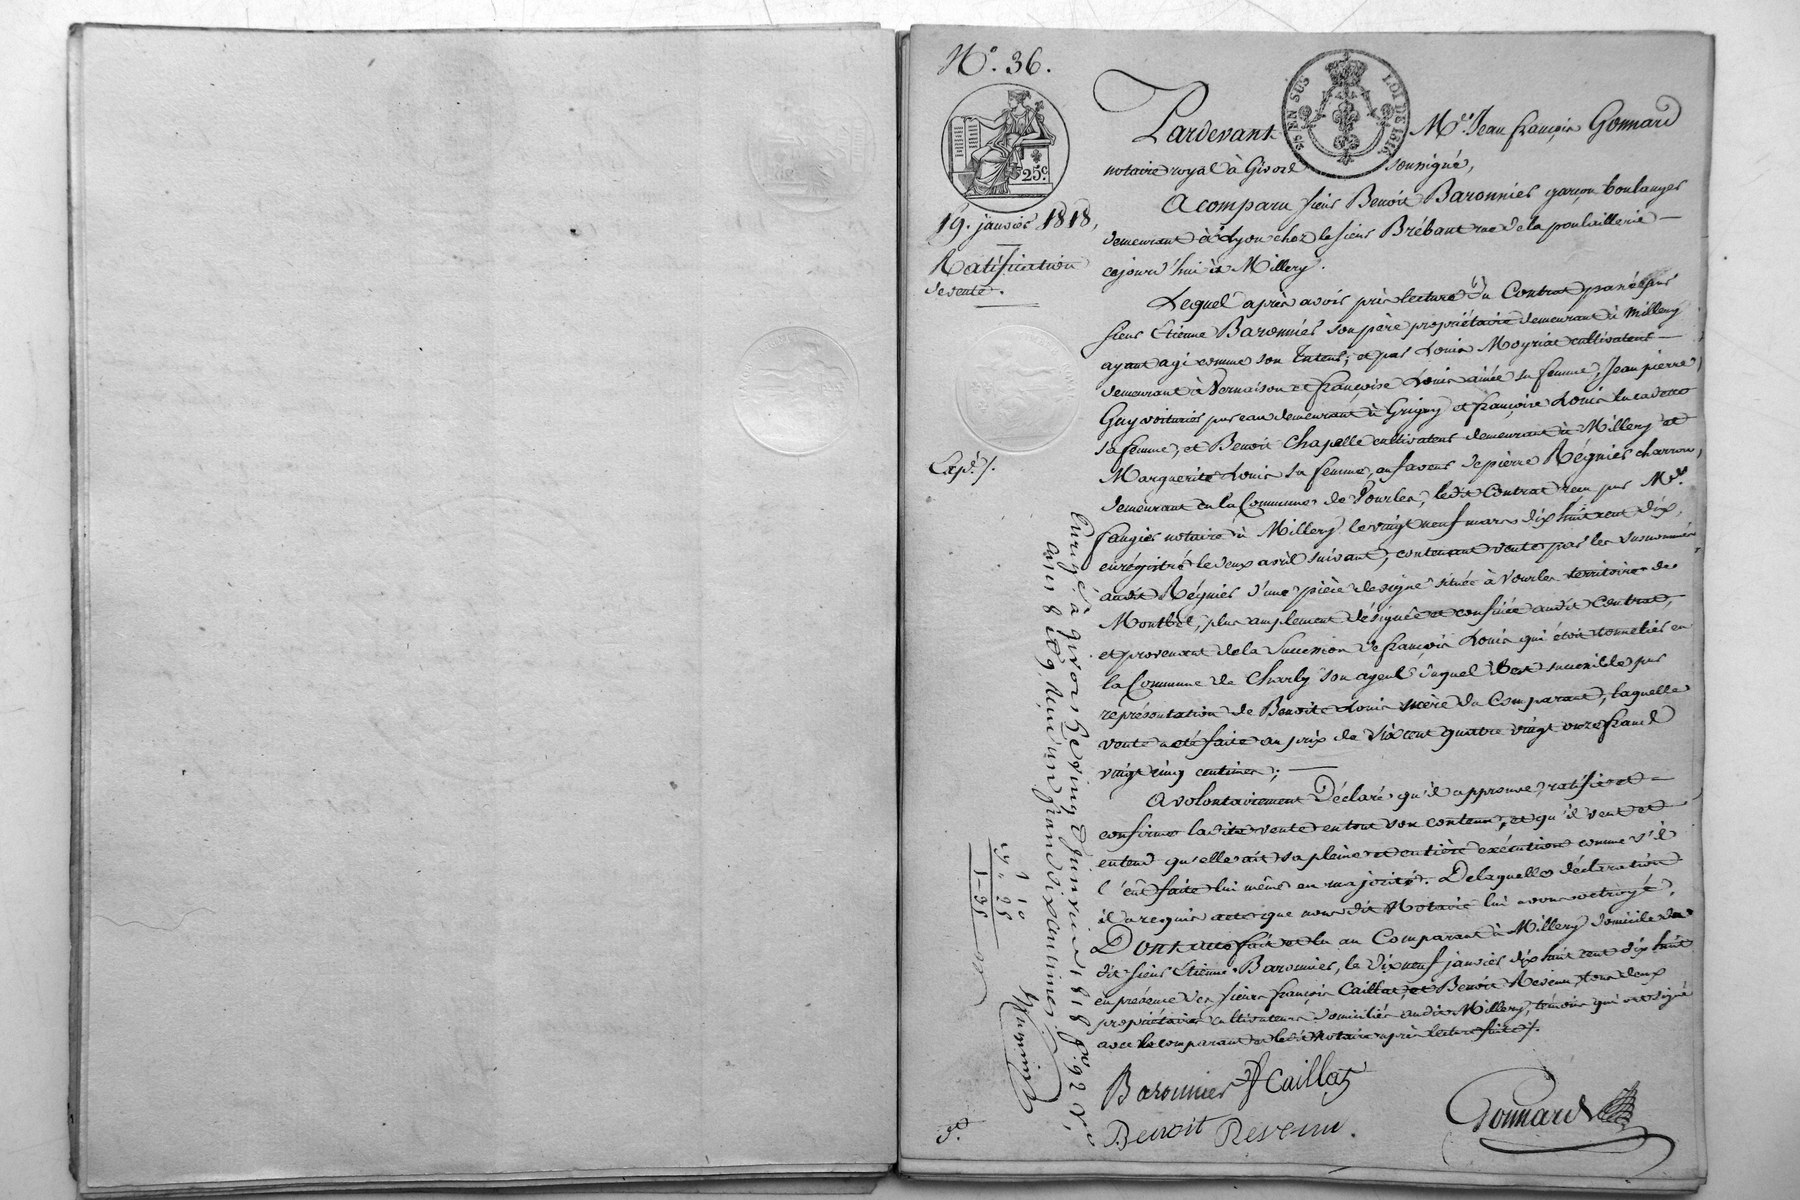 N.° 36.
25c.
5c. EN SUS
LOI DE 1816
19. janvier 1818,
Ratification
de vente.
Expé. /.
Pardevant Me. Jean françois Gonnard
notaire royal à Givors soussigné,
A comparu sieur Benoit Baronnier garçon boulanger
demeurant à Lyon chez le sieur Brébant rue de la poulaillerie
cejourd'hui à Millery.
Lequel après avoir pris lecture du Contrat passé par
sieur Etienne Baronnier son père propriétaire demeurant à Millery
ayant agi comme son Tuteur, et par Louis Moyriat cultivateur
demeurant à Vernaison et françoise Louis ainée sa femme, Jean pierre
Guy voiturier par eau demeurant à Grigny et françoise Louis la cadette
sa femme, et Benoit Chapelle cultivateur demeurant à Millery et
Marguerite Louis sa femme, en faveur de pierre Régnier charron,
demeurant en la Commune de Vourles, ledit Contrat reçu par Me.
faugier notaire à Millery le vingt neuf mars dix huit cent dix,
enrégistré le deux avril suivant, contenant vente par les susnommés
audit Régnier d'une pièce de vigne située à Vourles territoire de
Montbel, plus amplement désignée et confinée audit Contrat,
et provenant de la Succession de françois Louis qui étoit tonnelier en
la Commune de Charly son ayeul duquel il est successible par
représentation de Benoite Louis mère du Comparant, laquelle
vente a été faite au prix de six cent quatre vingt onze francs
vingt cinq centimes;
A volontairement Déclaré qu'il approuve, ratifie et
confirme ladite vente en tout son contenu, et qu'il veut et
entend qu'elle ait sa pleine et entière exécution comme s'il
l'eût faite lui même en majorité. De laquelle déclaration
il a requis acte que nous dit Notaire lui avons octroyé.
Dont acte fait et lu au Comparant à Millery domicile du
dit sieur Etienne Baronnier, le dix neuf janvier dix huit cent dix huit
en présence des sieurs françois Caillat, et Benoit Revenu, tous deux
propriétaires cultivateurs domiciliés audit Millery, témoins qui ont signé
avec le comparant et ledit Notaire après lecture faite /.
Baronnier f Caillat
Benoit Revenu.
Gonnard
Enrgé. à givors le vingt janvier 1818 fo. 92
reçu un franc dix centimes